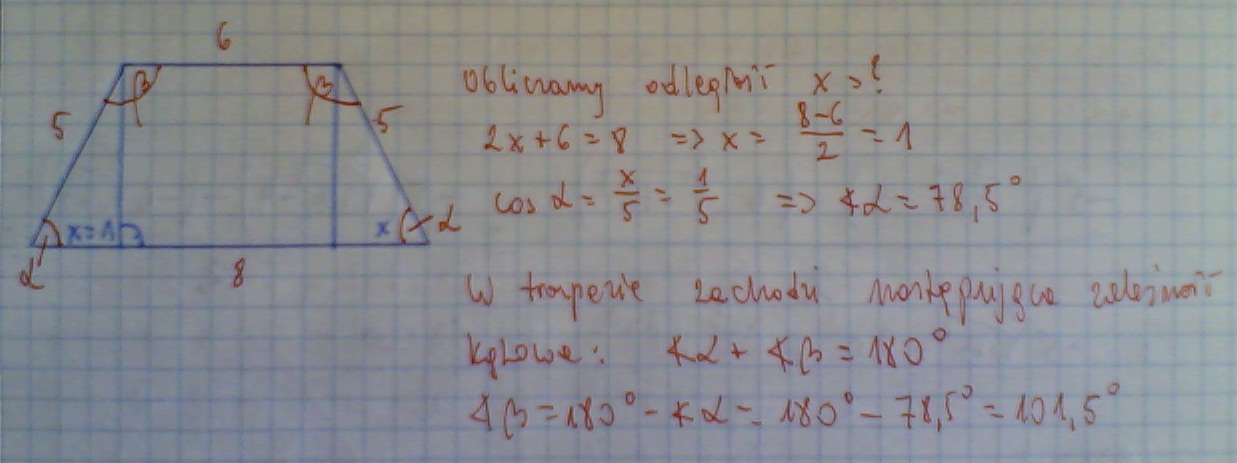 6
β β
5 5
x=1 x α
α 8
Obliczamy odległość x = ?
2x+6 = 8 => x = \frac{8-6}{2} = 1
cos α = \frac{x}{5} = \frac{1}{5} => ∢α = 78,5°
W trapezie zachodzi następująca zależność
kątowa: ∢α + ∢β = 180°
∢β = 180° - ∢α = 180° - 78,5° = 101,5°